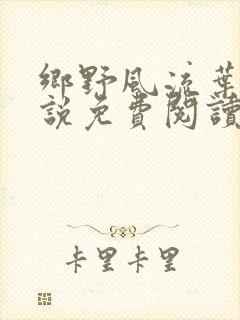 鄉野風流葉
說免費閱讀
卡里卡里